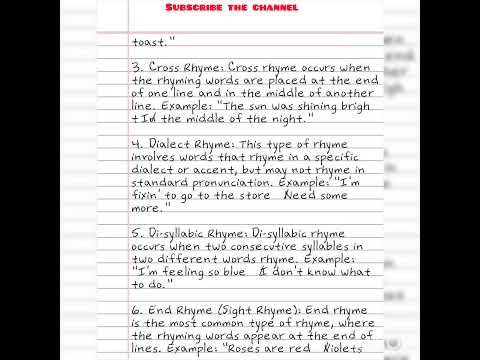 SUBSCRIBE THE CHANNEL
toast."
3. Cross Rhyme: Cross rhyme occurs when
the rhyming words are placed at the end
of one line and in the middle of another
line. Example: "The sun was shining brigh
t In the middle of the night."
4. Dialect Rhyme: This type of rhyme
involves words that rhyme in a specific
dialect or accent, but may not rhyme in
standard pronunciation. Example: "I'm
fixin' to go to the store Need some
more."
5. Di-syllabic Rhyme: Di-syllabic rhyme
occurs when two consecutive syllables in
two different words rhyme. Example:
"I'm feeling so blue I don't know what
to do."
6. End Rhyme (Sight Rhyme): End rhyme
is the most common type of rhyme, where
the rhyming words appear at the end of
lines. Example: "Roses are red Violets